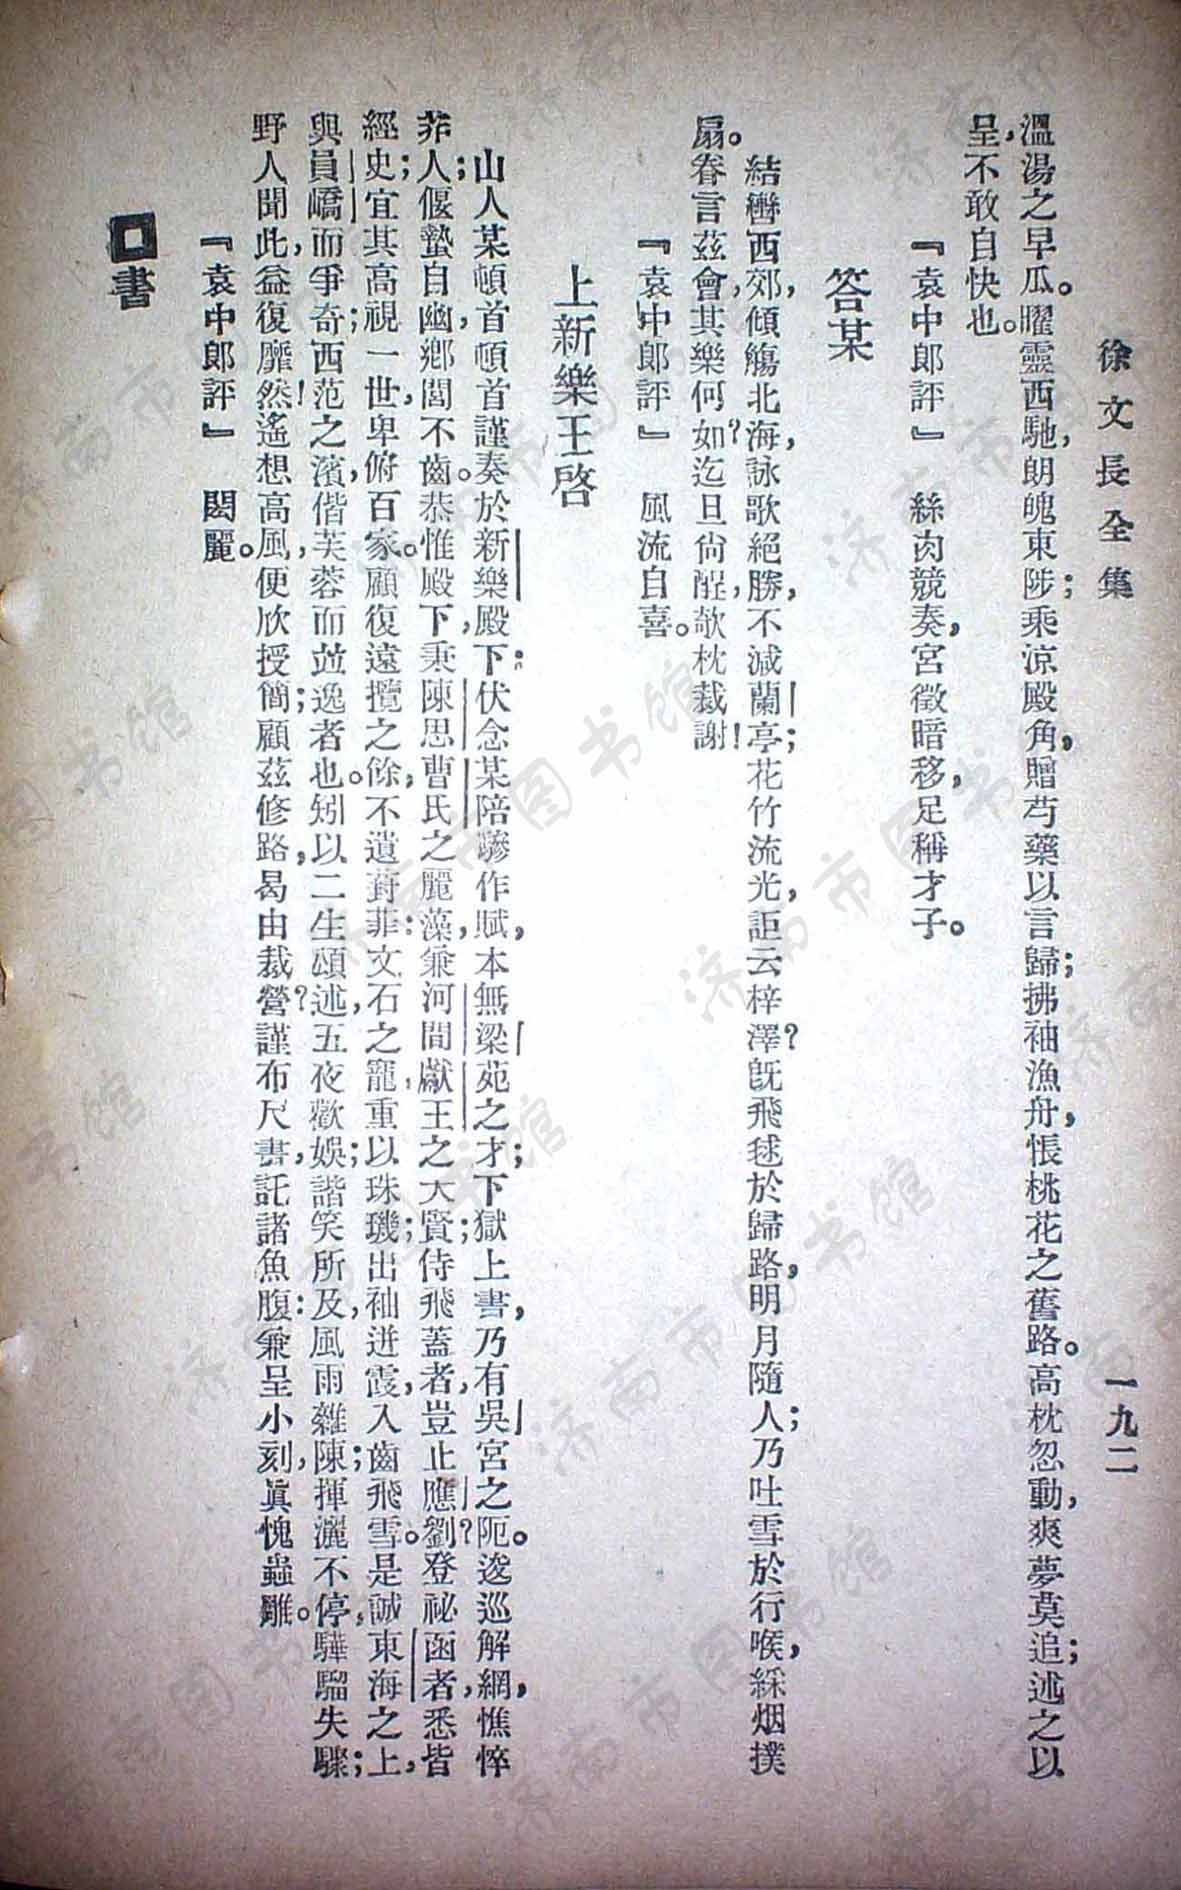 徐文長全集
一九二
溫湯之早瓜。曜靈西馳，朗魄東陟；乘涼殿角，贈芍藥以言歸；拂袖漁舟，悵桃花之舊路。高枕忽動，爽夢莫追；述之以
呈，不敢自快也。
『袁中郎評』 絲肉競奏，宮徵暗移，足稱才子。
答某
結轡西郊，傾觴北海，詠歌絕勝，不減蘭亭；花竹流光，詎云梓澤？旣飛毬於歸路，明月隨人；乃吐雪於行喉，綵烟撲
扇。眷言茲會，其樂何如？迄旦尙酲，欹枕裁謝！
『袁中郎評』 風流自喜。
上新樂王啓
山人某頓首頓首謹奏於新樂殿下：伏念某陪驂作賦，本無梁苑之才；下獄上書，乃有吳宮之阨。逡巡解網，憔悴
非人；偃蟄自幽，鄉閭不齒。恭惟殿下，秉陳思曹氏之麗藻，兼河間獻王之大賢；侍飛蓋者，豈止應劉？登祕函者，悉皆
經史；宜其高視一世，卑俯百家。顧復遠攬之餘，不遺葑菲：文石之寵，重以珠璣；出袖迸霞，入齒飛雪。是誠東海之上，
與員嶠而爭奇；西范之濱，偕芙蓉而並逸者也。矧以二生頌述，五夜歡娛；諧笑所及，風雨雜陳；揮灑不停，驊騮失驟；
野人聞此，益復靡然！遙想高風，便欣授簡；顧茲修路，曷由裁營？謹布尺書，託諸魚腹：兼呈小刻，眞愧蟲雕。
『袁中郎評』 閎麗。
書